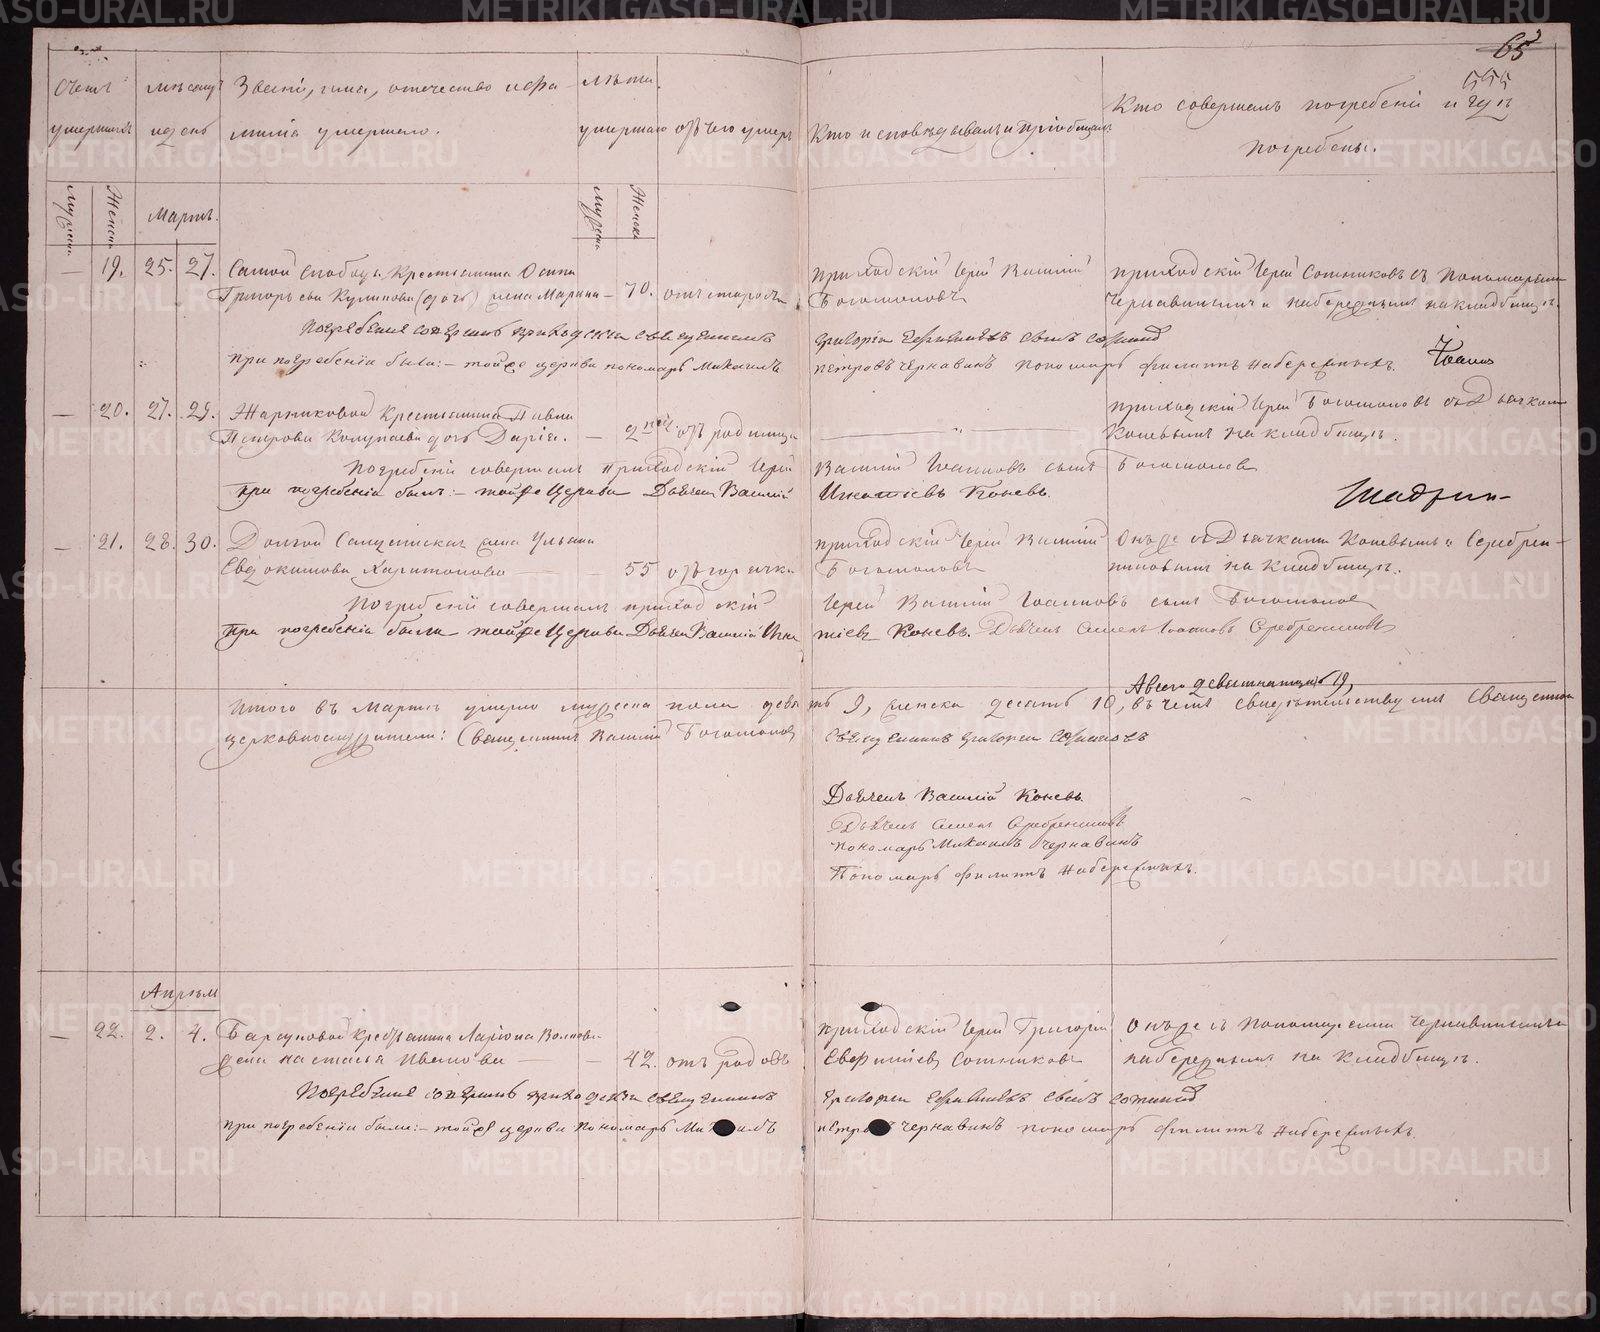 METRIKI.GASO-URAL.RU
65
555
Счетъ умершихъ
Мѣсяцъ и день
Званіе, имя, отечество и фамилія умершаго.
Лѣта умершаго
отъ чего умеръ
Кто исповѣдывалъ и пріобщалъ
Кто совершалъ погребеніе и гдѣ погребены.
Мужеска
Женска
Мартъ.
Мужеска
Женска
— 19. 25. 27. Самой Слободы Крестьянина Осипа
Григорьева Куликова жена Марина — 70. отъ старости
приходскій Іерей Василій
Богомоловъ
приходскій Іерей Сотниковъ съ Пономарями
Чернавинымъ и Набережнымъ на кладбищѣ.
Погребеніе совершалъ приходскій священникъ Григорій Сотниковъ
при погребеніи были: — той же церкви пономарь Михаилъ Петровъ Чернавинъ пономарь Филиппъ Набережныхъ.
— 20. 27. 29. Жарниковой Крестьянина Павла
Петрова дочь Дарія. — 2 нед. отъ родимца
приходскій Іерей Богомоловъ съ Дьячкомъ
Коневымъ на кладбищѣ.
Погребеніе совершалъ Приходскій Іерей Василій Іоанновъ сынъ Богомоловъ
при погребеніи былъ: — той же Церкви Дьячекъ Василій Игнатіевъ Коневъ.
Шадрин-
— 21. 28. 30. Долгой жена Ульяна
Евдокимова Харитонова — 55 отъ горячки
приходскій Іерей Василій
Богомоловъ
Онъ же съ Дьячками Коневымъ и Серебрен-
никовымъ на Кладбищѣ.
Погребеніе совершалъ приходскій Іерей Василій Іоанновъ сынъ Богомоловъ
При погребеніи были той же Церкви Дьячекъ Василій Игнатіевъ Коневъ. Дьячекъ Іоанновъ Серебренниковъ
А всего девятнатцать 19,
Итого въ Мартѣ умерло мужеска пола девять 9, женска десять 10, въ чемъ свидѣтельствуемъ Священно
церковнослужители: Священникъ Василій Богомоловъ
Священникъ Григорій Сотниковъ
Дьячекъ Василій Коневъ.
Дьячекъ Серебренниковъ
пономарь Михаилъ Чернавинъ
Пономарь Филиппъ Набережныхъ.
Апрѣль
— 22. 2. 4. Барсуковой Крестьянина Ларіона
жена Настасья Иванова — 42. отъ родовъ
приходскій Іерей Григорій
Сотниковъ
Онъ же съ Пономарями Чернавинымъ и
Набережнымъ на Кладбищѣ.
Погребеніе совершалъ приходскій священникъ Григорій
при погребеніи были: — той же церкви Пономарь Михаилъ Петровъ Чернавинъ пономарь Филиппъ Набережныхъ.